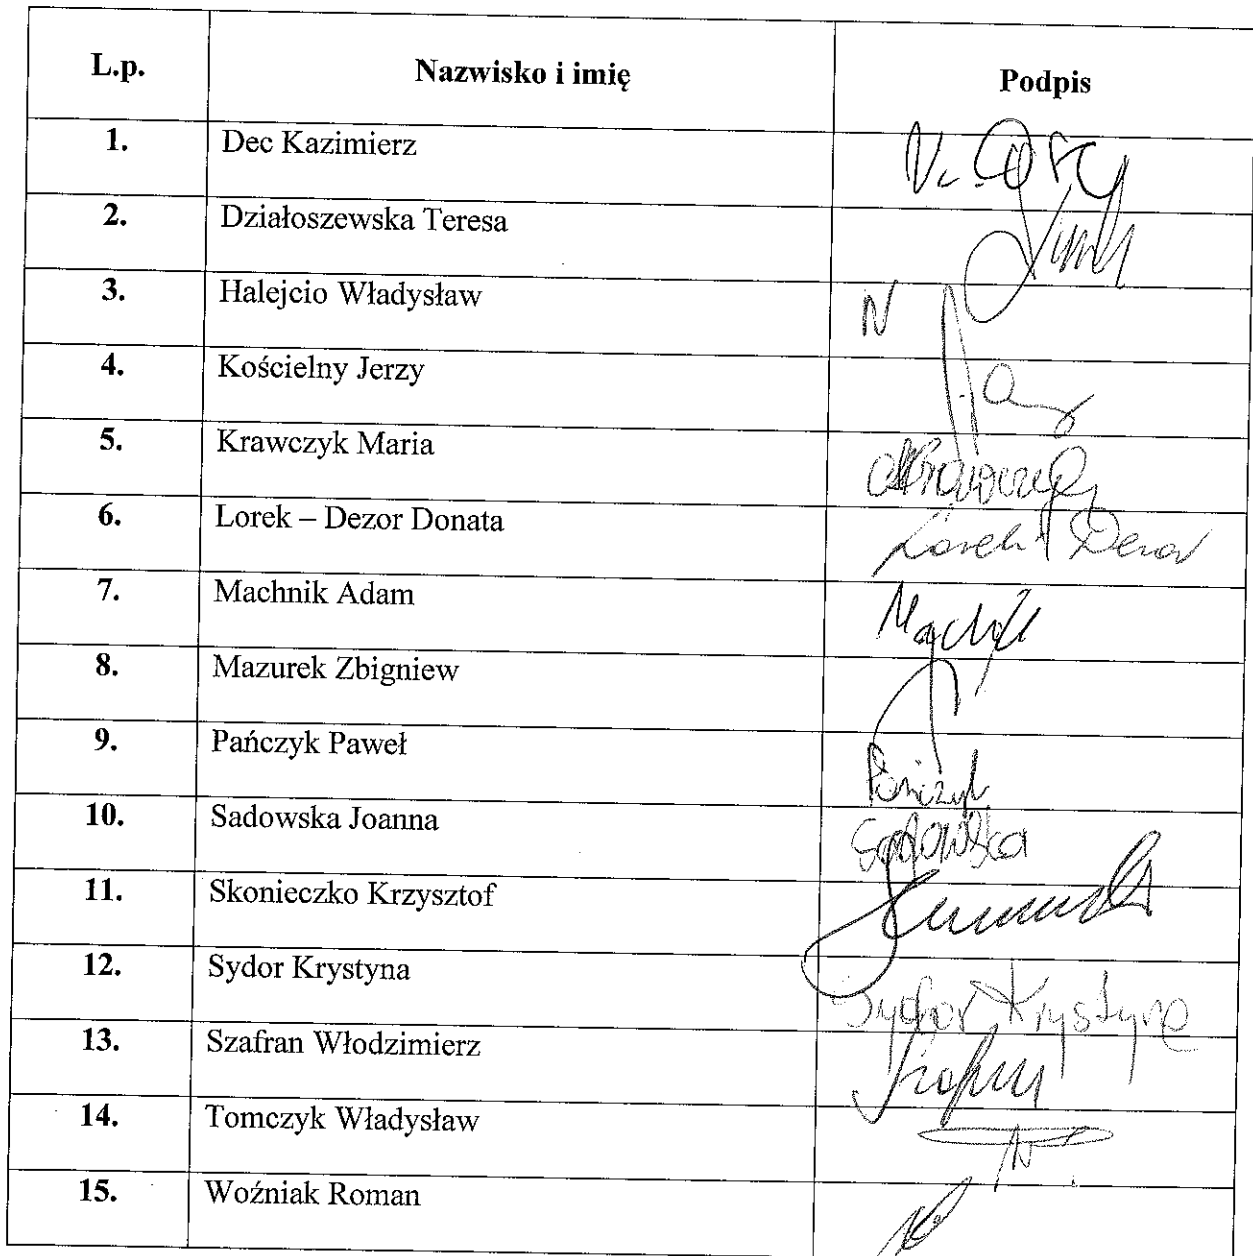 L.p. Nazwisko i imię Podpis
1. Dec Kazimierz
2. Działoszewska Teresa
3. Halejcio Władysław N
4. Kościelny Jerzy
5. Krawczyk Maria Krawczyk
6. Lorek – Dezor Donata Lorek Dezor
7. Machnik Adam Machnik
8. Mazurek Zbigniew
9. Pańczyk Paweł Pańczyk
10. Sadowska Joanna Sadowska
11. Skonieczko Krzysztof
12. Sydor Krystyna Sydor Krystyna
13. Szafran Włodzimierz Szafran
14. Tomczyk Władysław
15. Woźniak Roman